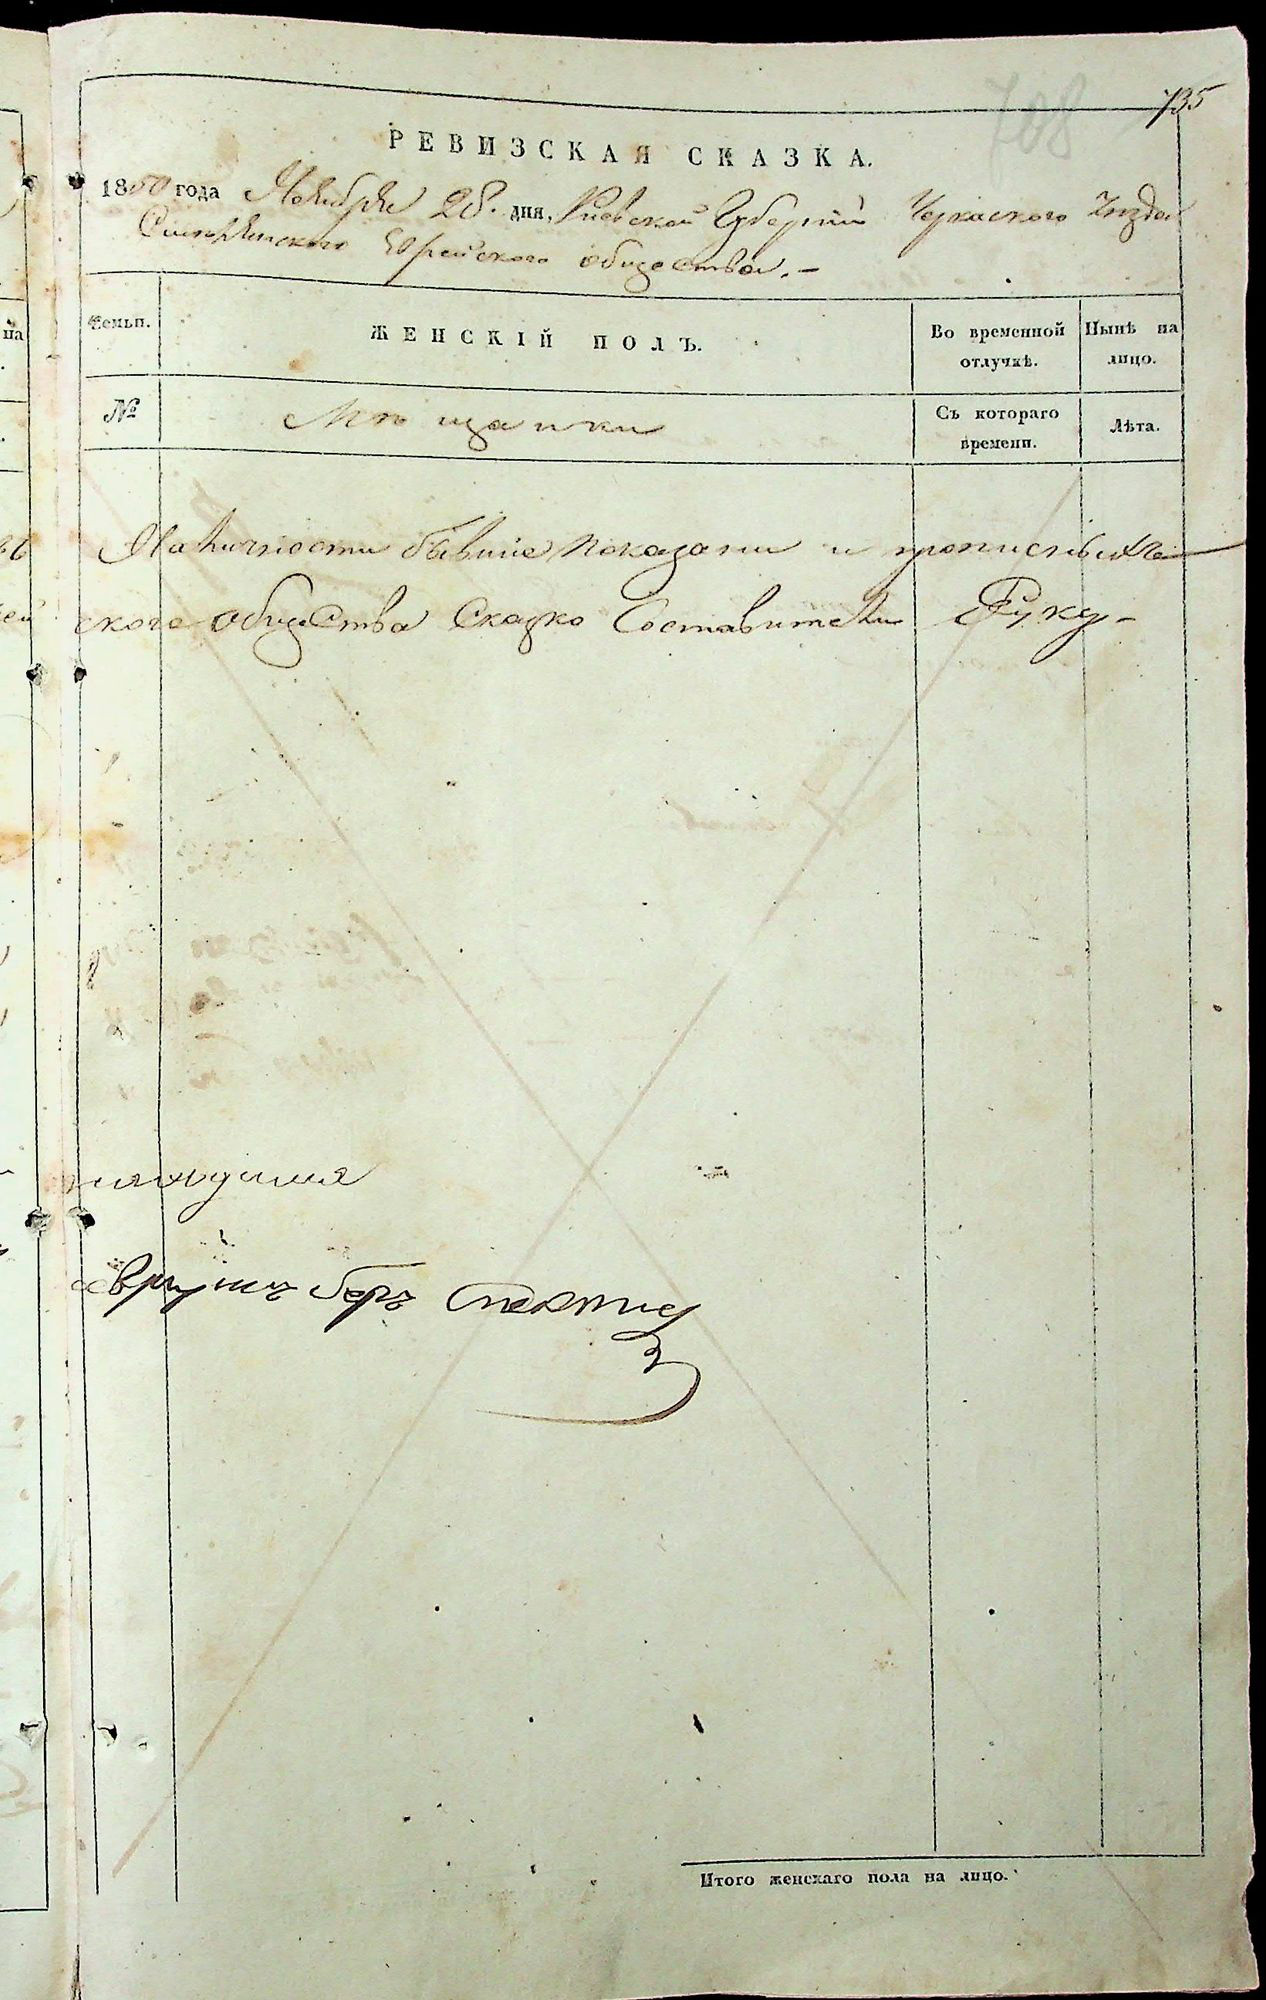 708
735
РЕВИЗСКАЯ СКАЗКА.
1850 года Ноября 28. дня, Киевской Губернии Черкаского Уезда
Еврейского общества. –
Семьи.
ЖЕНСКІЙ ПОЛЪ.
Во временной отлучкѣ.
Нынѣ на лицо.
№
Мѣщанки
Съ котораго времени.
Лѣта.
Наличности бывшие показани и прописныхъ
ского общества Сказко Составители Руку –
беръ
Итого женскаго пола на лицо.